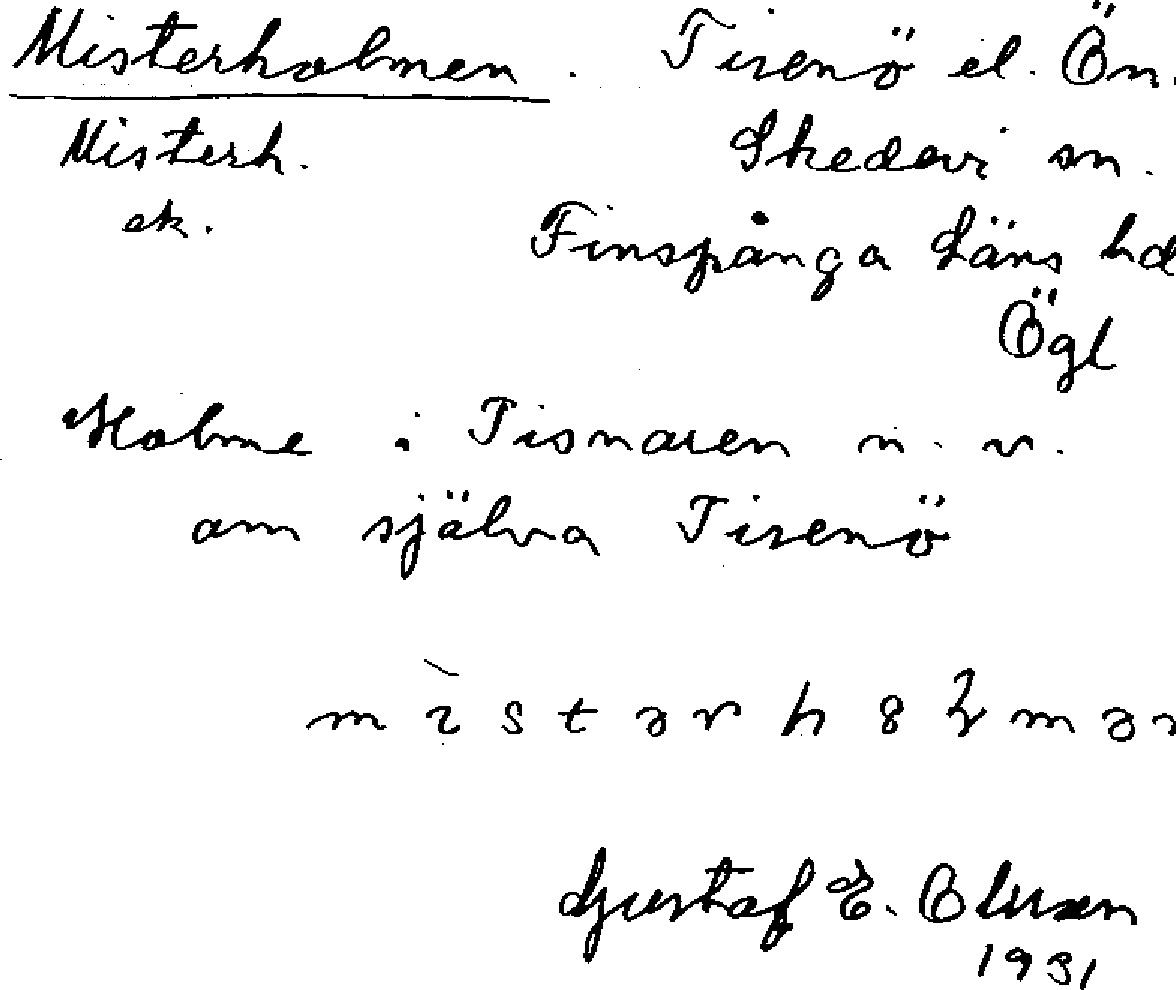 Misterholmen. Tisenö el. Ön.
Misterh. Skedevi sn.
ek. Finspånga Läns hd
Ögl
Holme i Tisnaren n. v.
om själva Tisenö
mìstərh8ɽmən
Gustaf E. Olsson
1931